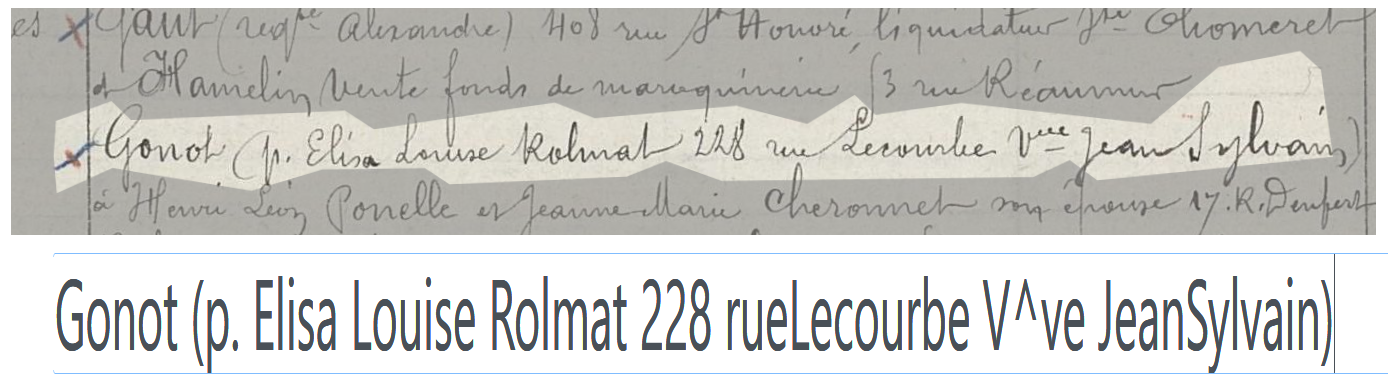 es x Gaut (reqte Alexandre) 408 rue St Honoré, liquidateur Sté Chomeret
et Hamelin, vente fonds de maroquinerie 53 rue Réaumur
x Gonot (p. Elisa Louise Rolmat 228 rue Lecourbe Vve Jean Sylvain)
à Henri Léon Ponelle et Jeanne Marie Cheronnet son épouse 17. R. Denfert
Gonot (p. Elisa Louise Rolmat 228 rueLecourbe V^ve JeanSylvain)